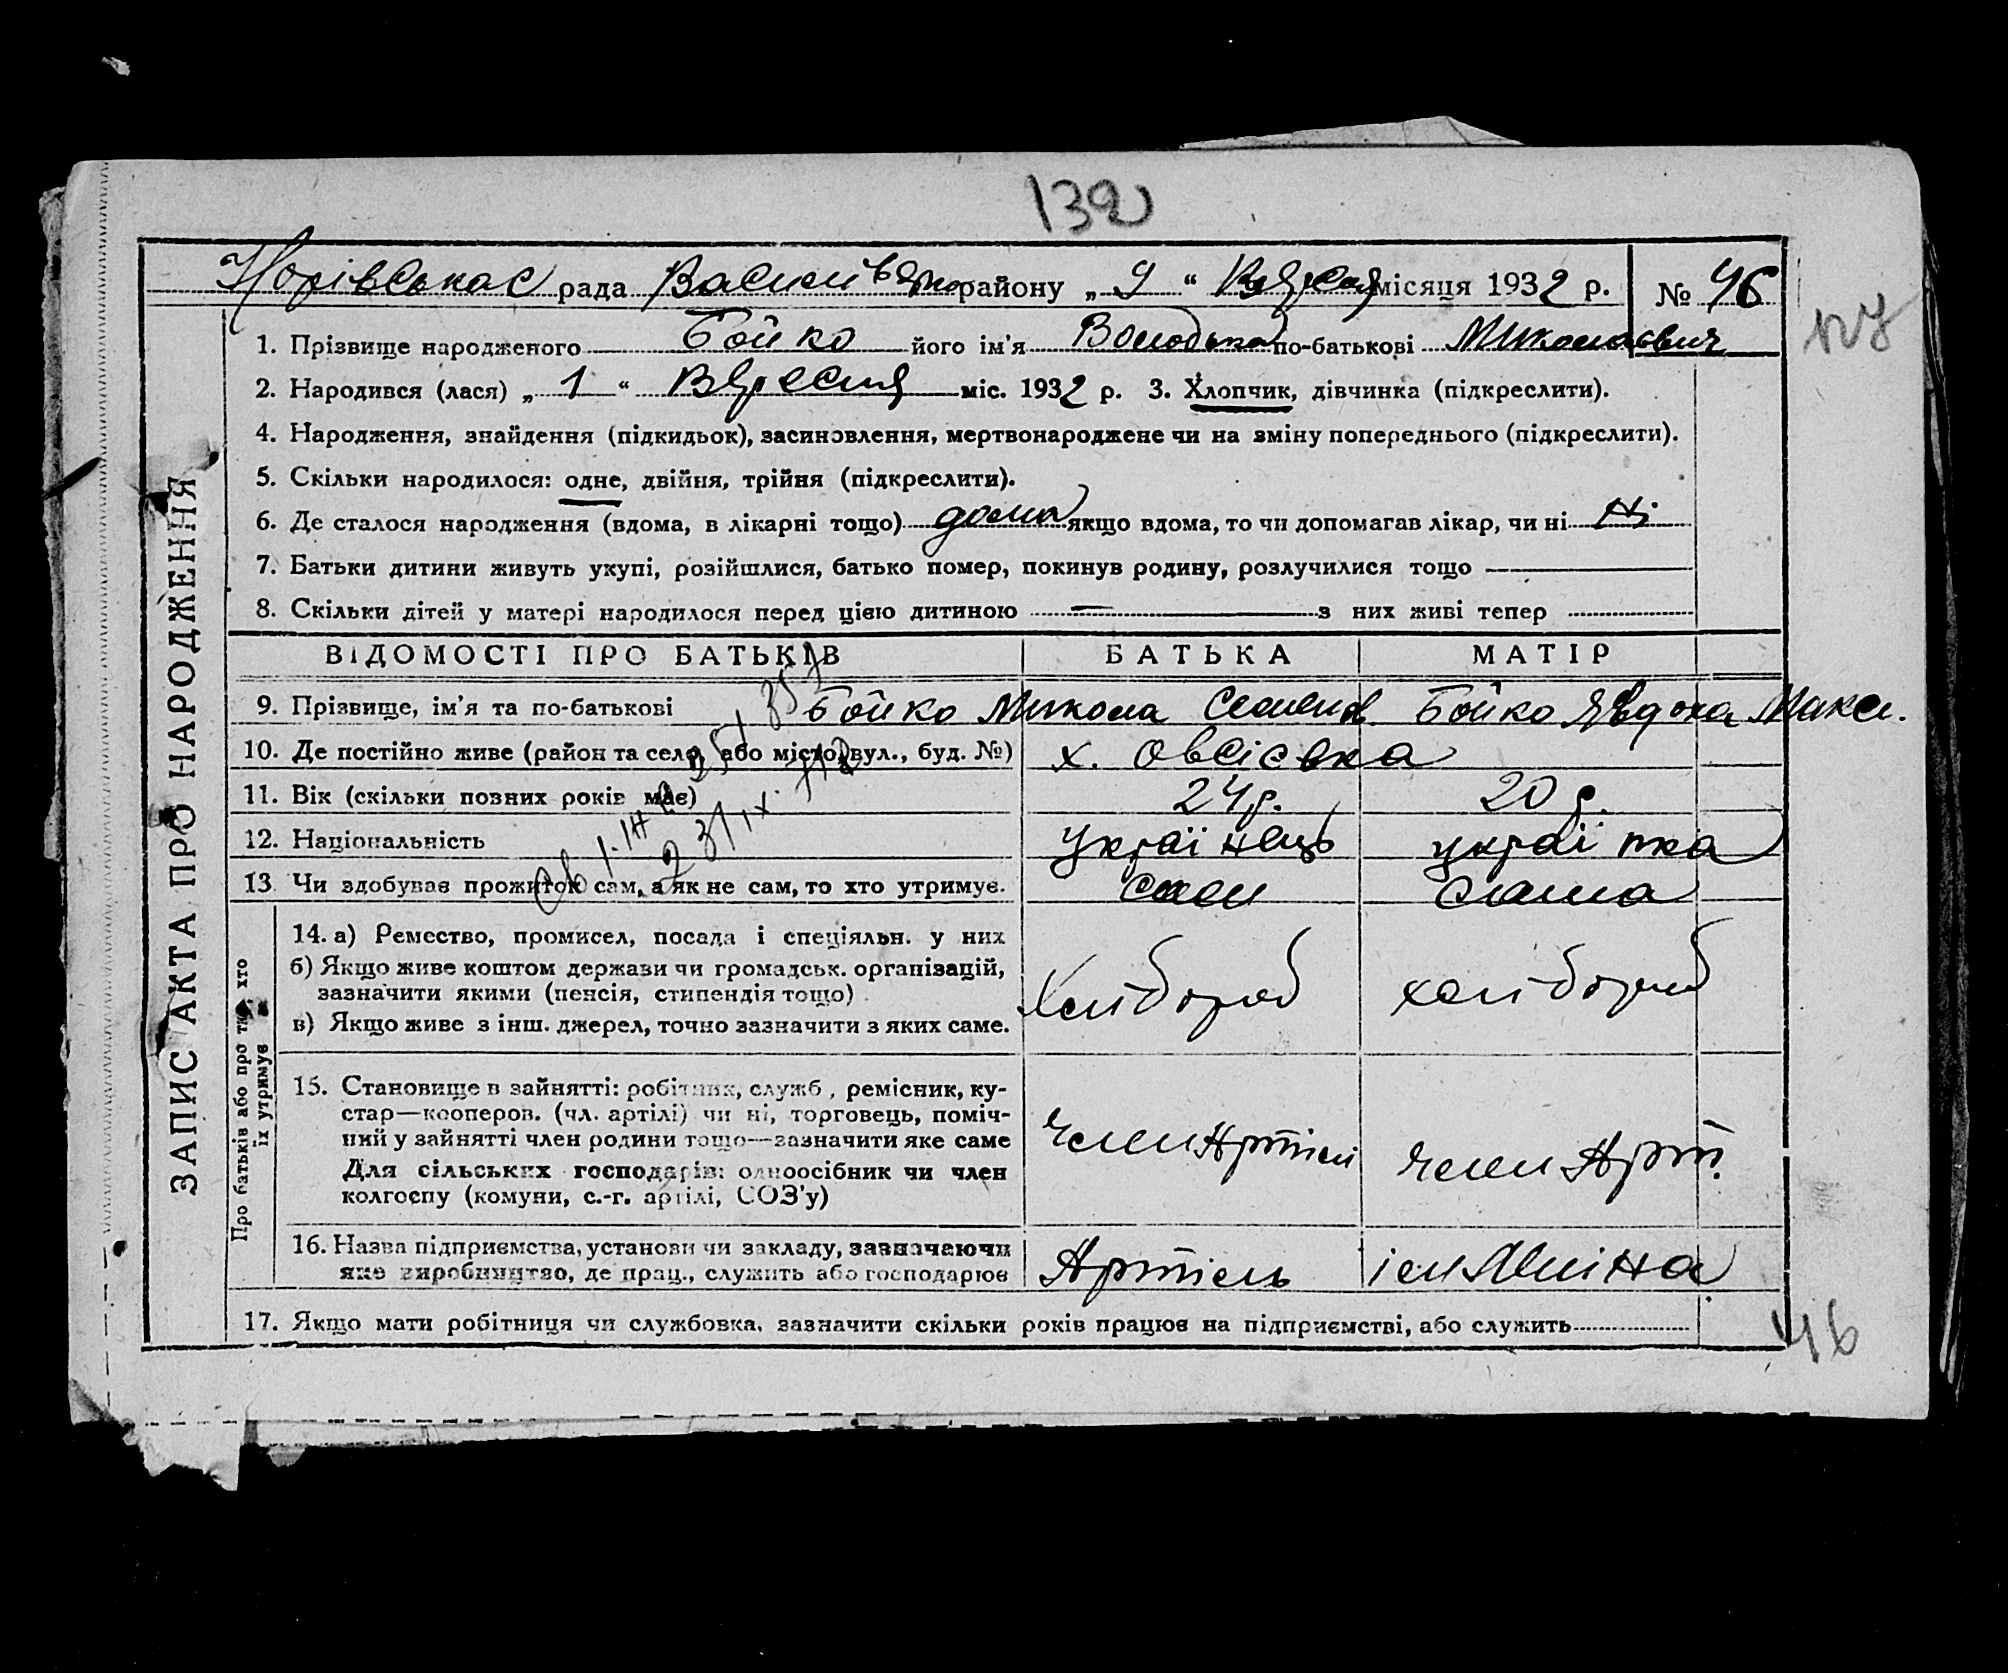 132
рада району „ 9 “ Вересня місяця 1932 р. № 46
1. Прізвище народженого Бойко його ім'я Володька по-батькові Миколаєвич
2. Народився (лася) „ 1 “ Вересня міс. 1932 р. 3. Хлопчик, дівчинка (підкреслити).
4. Народження, знайдення (підкидьок), засиновлення, мертвонароджене чи на зміну попереднього (підкреслити).
5. Скільки народилося: одне, двійня, трійня (підкреслити).
6. Де сталося народження (вдома, в лікарні тощо) дома якщо вдома, то чи допомагав лікар, чи ні Ні
7. Батьки дитини живуть укупі, розійшлися, батько помер, покинув родину, розлучилися тощо
8. Скільки дітей у матері народилося перед цією дитиною — з них живі тепер
ЗАПИС АКТА ПРО НАРОДЖЕННЯ
ВІДОМОСТІ ПРО БАТЬКІВ БАТЬКА МАТІР
9. Прізвище, ім'я та по-батькові Бойко Микола Семенов. Бойко Явдоха Макси.
10. Де постійно живе (район та село, або місто, вул., буд. №) х. Овсієвка
11. Вік (скільки повних років має) 24 р. 20 р.
12. Національність Українець українка
13 Чи здобуває прожиток сам, а як не сам, то хто утримує. сам сама
Про батьків або про тих, хто їх утримує
14. а) Ремество, промисел, посада і спеціяльн. у них
б) Якщо живе коштом держави чи громадськ. організацій,
зазначити якими (пенсія, стипендія тощо)
в) Якщо живе з інш. джерел, точно зазначити з яких саме.
Хлібороб хлібороб
15. Становище в зайнятті: робітник, служб., ремісник, ку-
стар—кооперов. (чл. артілі) чи ні, торговець, поміч-
ний у зайнятті член родини тощо—зазначити яке саме
Для сільських господарів: одноосібник чи член
колгоспу (комуни, с.-г. артілі, СОЗ'у)
член Артілі член Арт.
16. Назва підприємства, установи чи закладу, зазначаючи
яке виробництво, де прац., служить або господарює
Артіль ім Леніна
17. Якщо мати робітниця чи службовка, зазначити скільки років працює на підприємстві, або служить
46